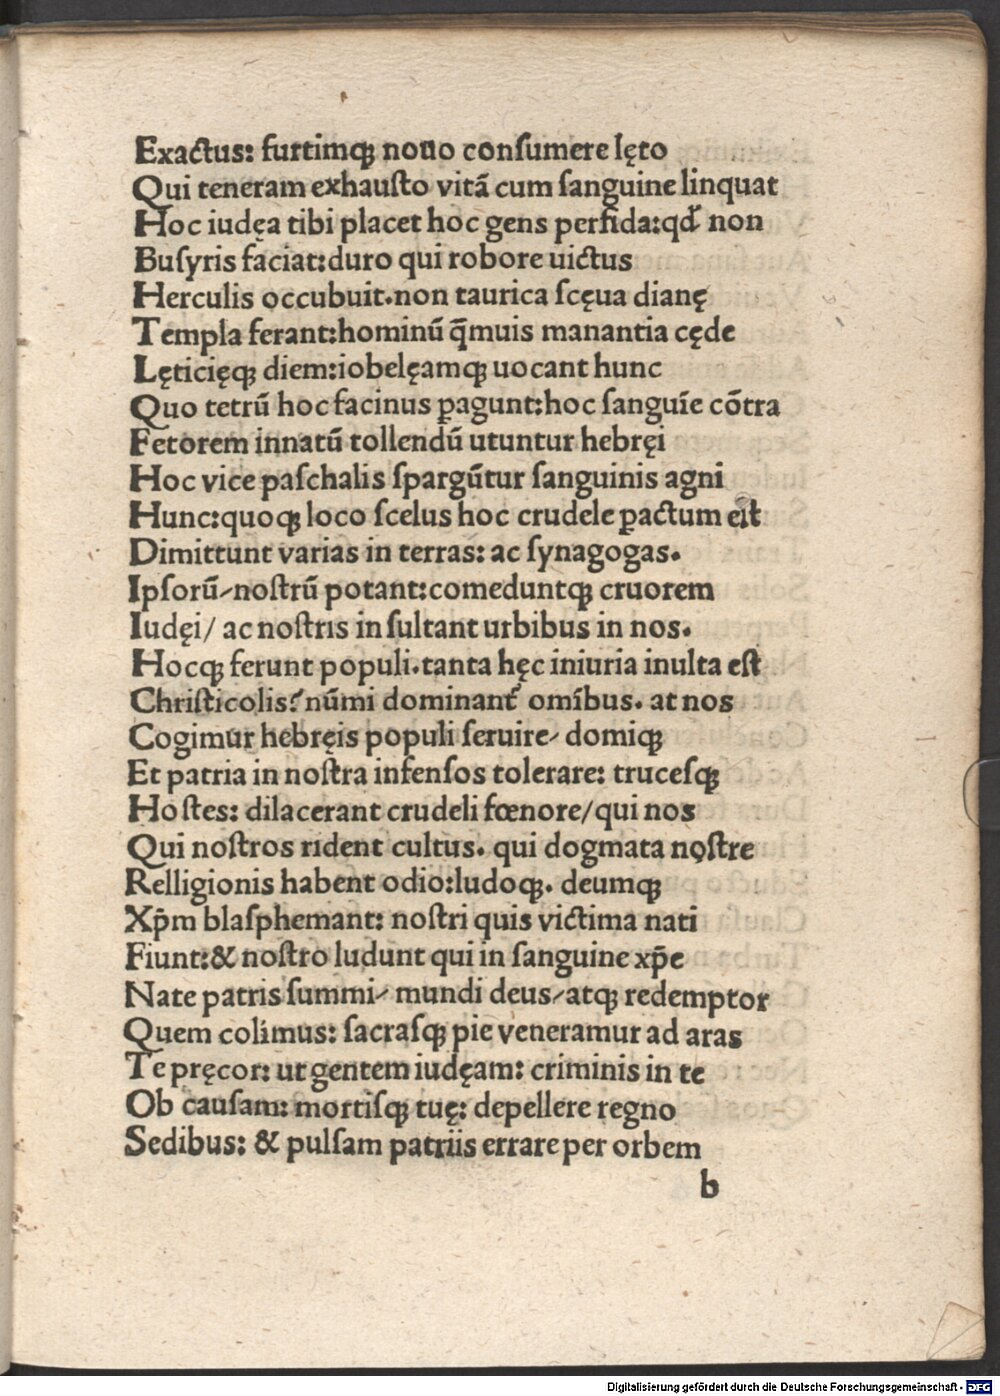 Exactus: furtimqꝫ nouo conſumere lęto
Qui teneram exhauſto vitā cum ſanguine linquat
Hoc iudęa tibi placet hoc gens perfida: qđ non
Buſyris faciat: duro qui robore uictus
Herculis occubuit. non taurica ſcęua dianę
Templa ferant: hominū q̄muis manantia cęde
Lęticięqꝫ diem: iobelęamqꝫ uocant hunc
Quo tetrū hoc facinus ꝑagunt: hoc ſanguīe cōtra
Fetorem innatū tollendū utuntur hebręi
Hoc vice paſchalis ſpargūtur ſanguinis agni
Hunc: quoqꝫ loco ſcelus hoc crudele ꝑactum eſt
Dimittunt varias in terras: ac ſynagogas.
Ipſorū/ noſtrū potant: comeduntqꝫ cruorem
Iudęi/ ac noſtris inſultant urbibus in nos.
Hocqꝫ ferunt populi. tanta hęc iniuria inulta eſt
Chriſticolis? nūmi dominant᷑ omībus. at nos
Cogimur hebręis populi ſeruire/ domiqꝫ
Et patria in noſtra infenſos tolerare: truceſqꝫ
Hoſtes: dilacerant crudeli fœnore/ qui nos
Qui noſtros rident cultus. qui dogmata noſtre
Relligionis habent odio: ludoqꝫ. deumqꝫ
Xp̄m blaſphemant: noſtri quis victima nati
Fiunt: & noſtro ludunt qui in ſanguine xp̄e
Nate patris ſummi/ mundi deus/ atqꝫ redemptor
Quem colimus: ſacraſqꝫ pie veneramur ad aras
Te pręcor: ut gentem iudęam: criminis in te
Ob cauſam: mortiſqꝫ tuę: depellere regno
Sedibus: & pulſam patriis errare per orbem
b
Digitalisierung gefördert durch die Deutsche Forschungsgemeinschaft - DFG